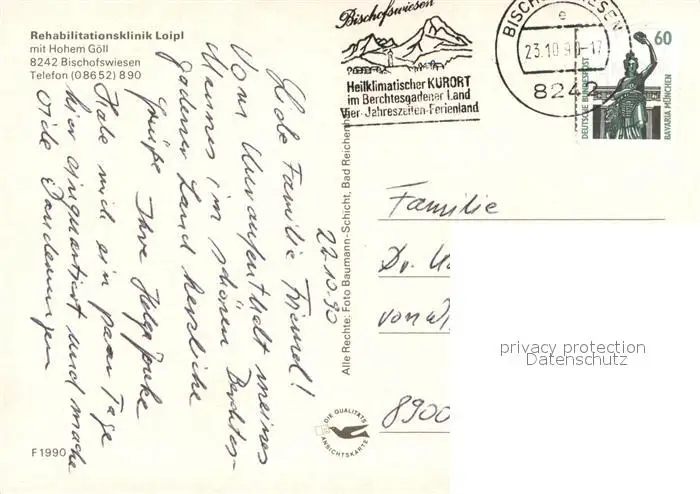 Rehabilitationsklinik Loipl
mit Hohem Göll
8242 Bischofswiesen
Telefon (08652) 890
Bischofswiesen
Heilklimatischer KURORT
im Berchtesgadener Land
Vier-Jahreszeiten-Ferienland
BISCHOFSWIESEN
e
23.10.90-17
8242
60
DEUTSCHE BUNDESPOST
BAVARIA MÜNCHEN
22.10.90
Liebe Familie
Vom Kuraufenthalt meines
Mannes im schönen Berchtes-
gadener Land herzliche
Grüße Ihre Helga
Habe mich ein paar Tage
hier einquartiert und mache
viele Wanderungen
Alle Rechte: Foto Baumann-Schicht, Bad Reichenh
Familie
Dr.
von
8900
DIE QUALITÄTS
ANSICHTSKARTE
F 1990
privacy protection
Datenschutz